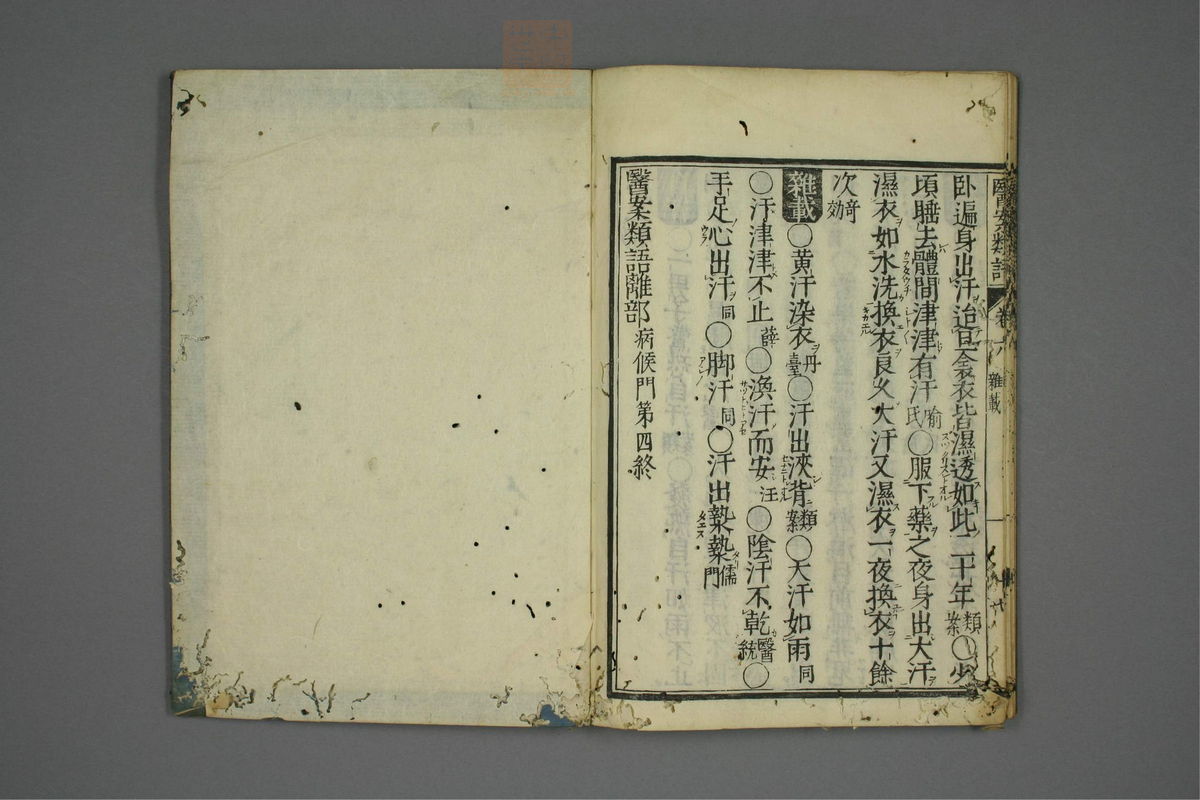 醫案類語 卷六 雜載
卧遍身出汗迨旦衾衣皆濕透如此二十年類案〇少
頃睡去體間津津有汗喻氏〇服下藥之夜身出大汗
濕衣如水洗換衣良久大汗又濕衣一夜換衣十餘
次奇効
雜載〇黃汗染衣丹臺〇汗出浹背類案〇大汗如雨同
〇汗津津不止薛〇渙汗而安汪〇陰汗不乾醫統〇
手足心出汗同〇脚汗同〇汗出漐漐儒門
醫案類語離部病候門第四終